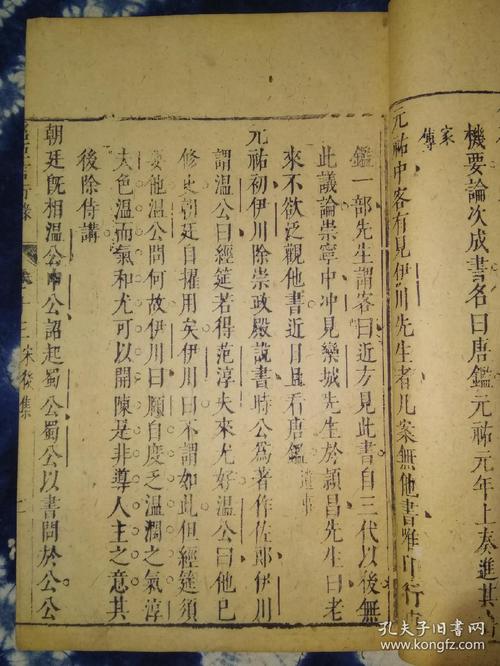 機要論次成書名曰唐鑑元祐元年上奏進其
家傳
元祐中客有見伊川先生者几案無他書唯印行
鑑一部先生謂客曰近方見此書自三代以後無
此議論崇寧中冲見欒城先生於潁昌先生曰老
來不欲泛觀他書近日且看唐鑑遺事
元祐初伊川除崇政殿說書時公為著作佐郎伊川
謂溫公曰經筵若得范淳夫來尤好溫公曰他已
修史朝廷自擢用矣伊川曰不謂如此但經筵須
要他溫公問何故伊川曰願自度乏溫潤之氣淳
夫色溫而氣和尤可以開陳是非導人主之意其
後除侍講
朝廷既相溫公申公詔起蜀公蜀公以書問於公公
言行錄
卷十三
後集
孔夫子旧书网
www.kongfz.com